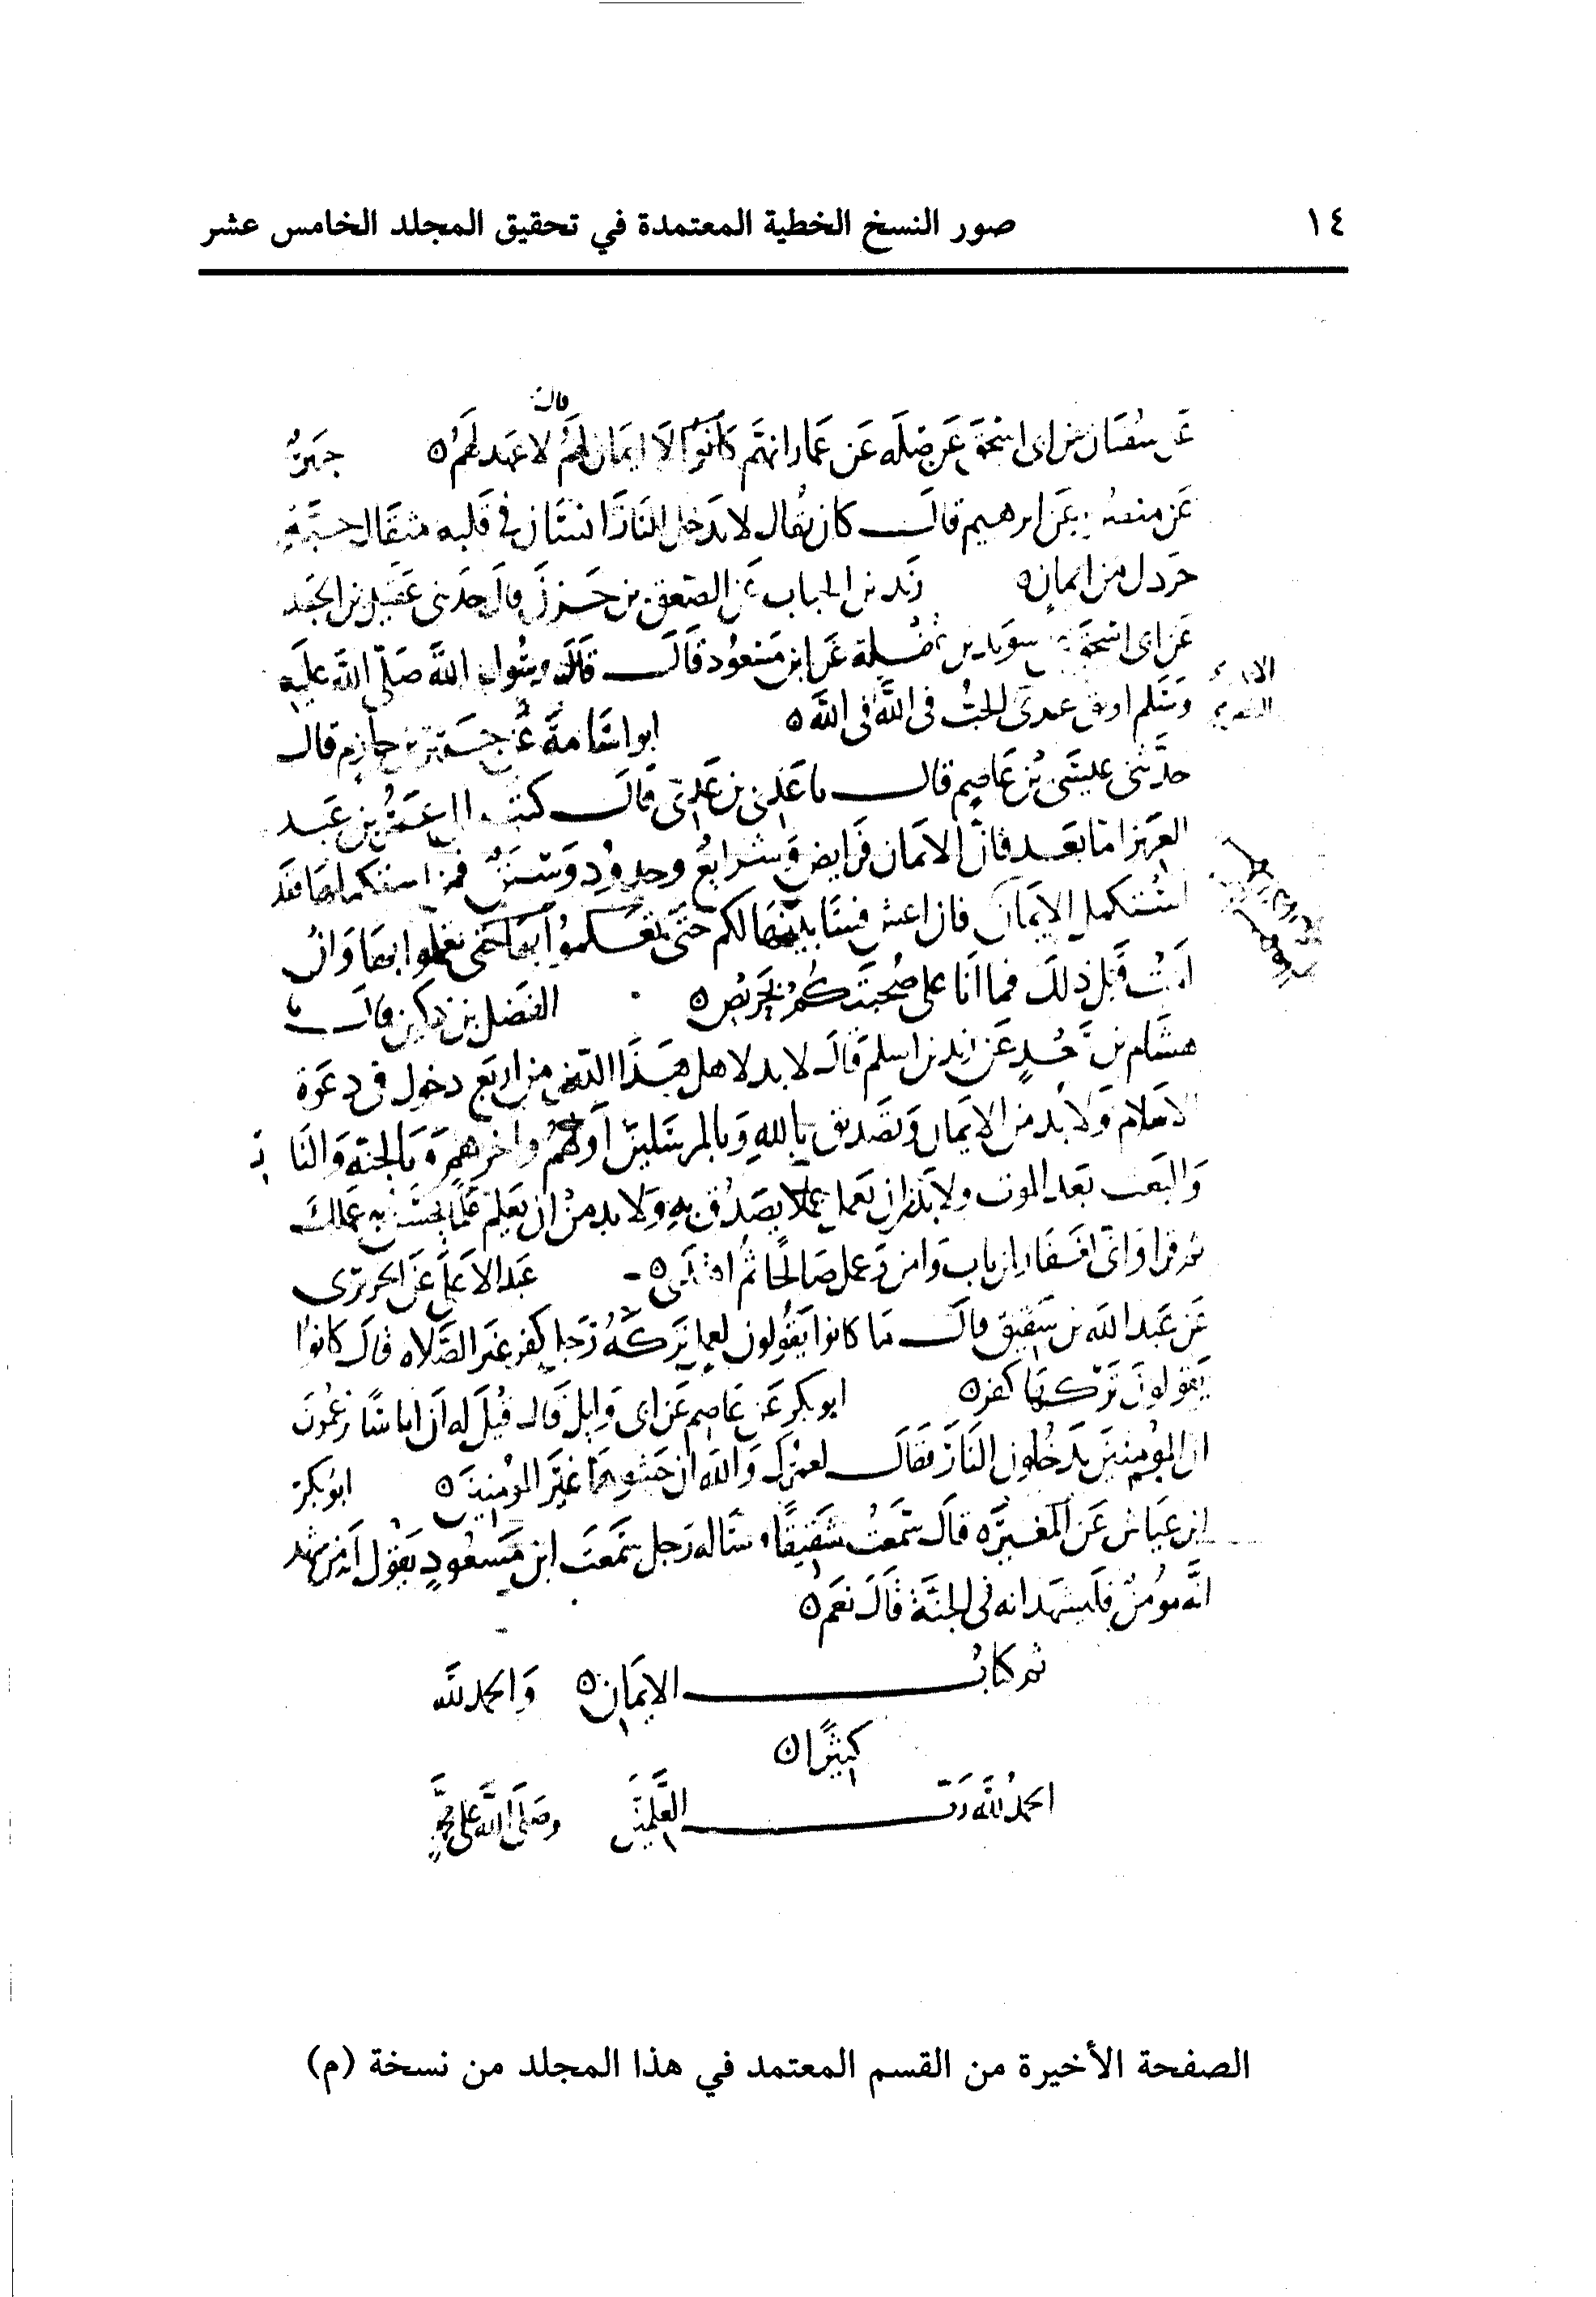 ١٤
صور النسخ الخطية المعتمدة في تحقيق المجلد الخامس عشر
قال
عن سفيان عن ابى اسحق عن صله عن عمار انهم كانوا لا ايمان لهم لا عهد لهم ه جرير
عن منصور عن ابرهيم قال كان يقال لا يدخل النار انسان في قلبه مثقال حبة من
خردل من ايمان ه زيد بن الحباب عن الصعق بن حزن قال حدثنى عقيل بن الجعد
عن ابى اسحق عن سويد بن غفلة عن ابن مسعود قال قال رسول الله صلى الله عليه
وسلم اوثق عرى الحب فى الله فى الله ه ابو اسامة عن جرير بن حازم قال
حدثنى عيسى بن عاصم قال ما عدى بن عدى قال كتب الى عمر بن عبد
العزيز اما بعد فان الايمان فرايض وشرايع وحدود وسنن فمن استكملها فقد
استكمل الايمان فان اعش فسابينها لكم حتى تعملوا بها وان
امت قبل ذلك فما انا على صحبتكم بحريص ه الفضل بن دكين قال
هشام بن سعد عن زيد بن اسلم قال لا بد لاهل هذا الدين من اربع دخول فى دعوة
الاسلام ولا بد من الايمان وتصديق بالله وبالمرسلين اولهم واخرهم وبالجنة والنار
والبعث بعد الموت ولا بد من ان تعمل عملا تصدق به ولا بد من ان تعلم علما تحسن به عملك
ثم قرا وانى لغفار لمن تاب وامن وعمل صالحا ثم اهتدى ه عبد الاعلى عن الجريرى
عن عبد الله بن شقيق قال ما كانوا يقولون لعمل تركه رجل كفر غير الصلاه قال كانوا
يقولون تركها كفر ه ابو بكر عن عاصم عن ابى وايل قال قيل له ان اناسا يزعمون
ان المؤمنين يدخلون النار فقال لعمرك والله ان حشوها غير المؤمنين ه ابو بكر
ابن عياش عن المغيره قال سمعت شقيقا وساله رجل سمعت ابن مسعود يقول انه من شهد
انه مؤمن فليشهد انه فى الجنة قال نعم ه
تم كتاب الايمان ه والحمد لله
كثيرا ه
الحمد لله رب العلمين وصلى الله على محمد
الصفحة الأخيرة من القسم المعتمد في هذا المجلد من نسخة (م)